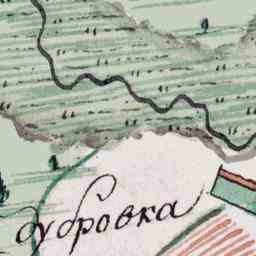 дубровка